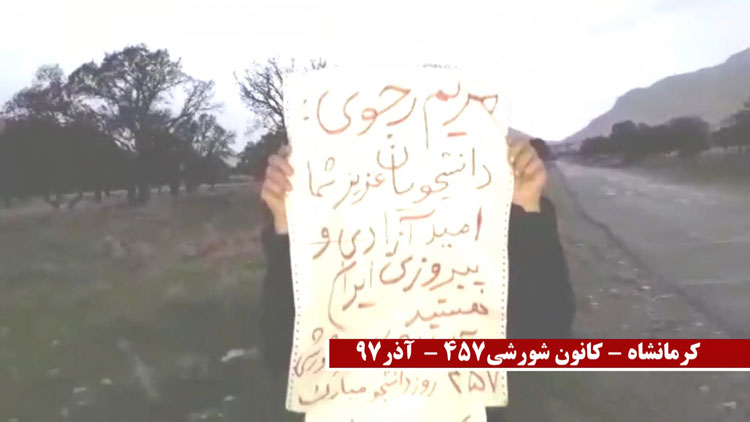 مریم رجوی:
دانشجویان
عزیز شما
امید آزادی و
پیروزی ایران
هستید
شورشی
۴۵۷ روز دانشجو مبارک
کرمانشاه - کانون شورشی۴۵۷ - آذر۹۷